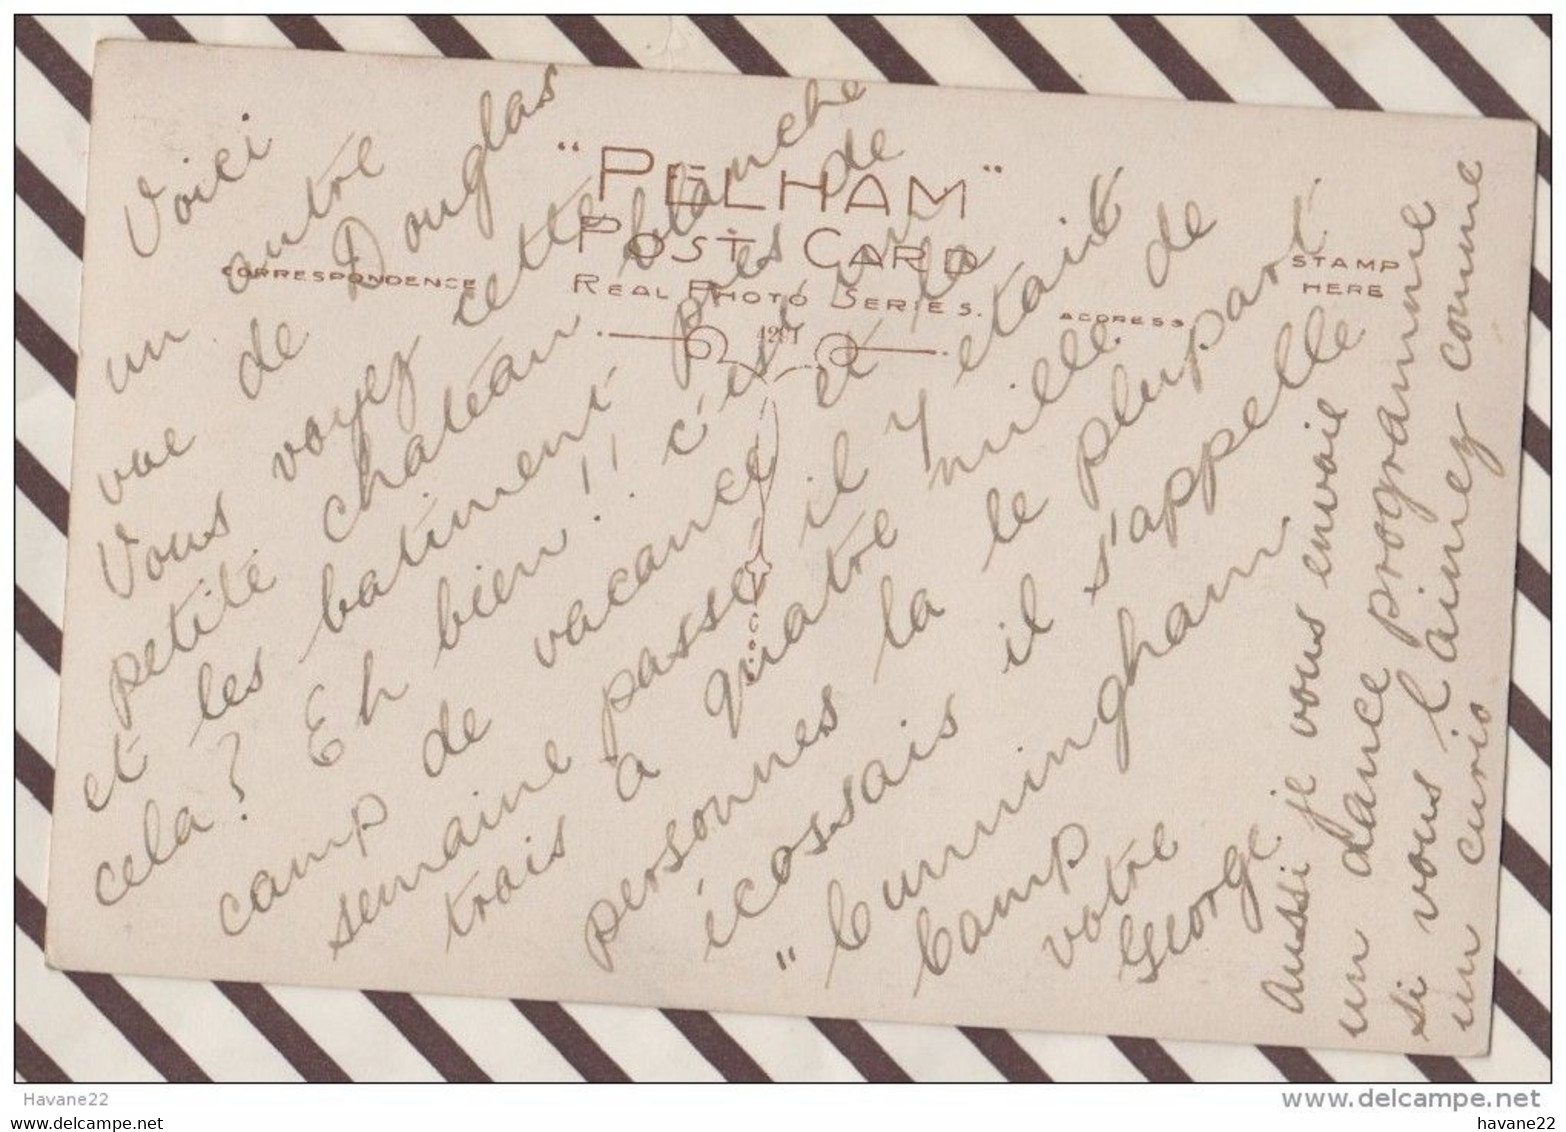 "PELHAM"
POST CARD
REAL PHOTO SERIES.
CORRESPONDENCE
ADDRESS
STAMP
HERE
4291
Voici
un autre
vue de Douglas
Vous voyez cette
petite chateau blanche
et les batiment près de
cela? Eh bien!!! c'est un
camp de vacance et la
semaine passé, il y etait
trois a quatre mille de
personnes la le plupart
écossais il s'appelle
"Cunningham
Camp
votre
George.
Aussi je vous envoie
un dance programme
si vous l'aimez comme
un curio
Havane22
www.delcampe.net
havane22